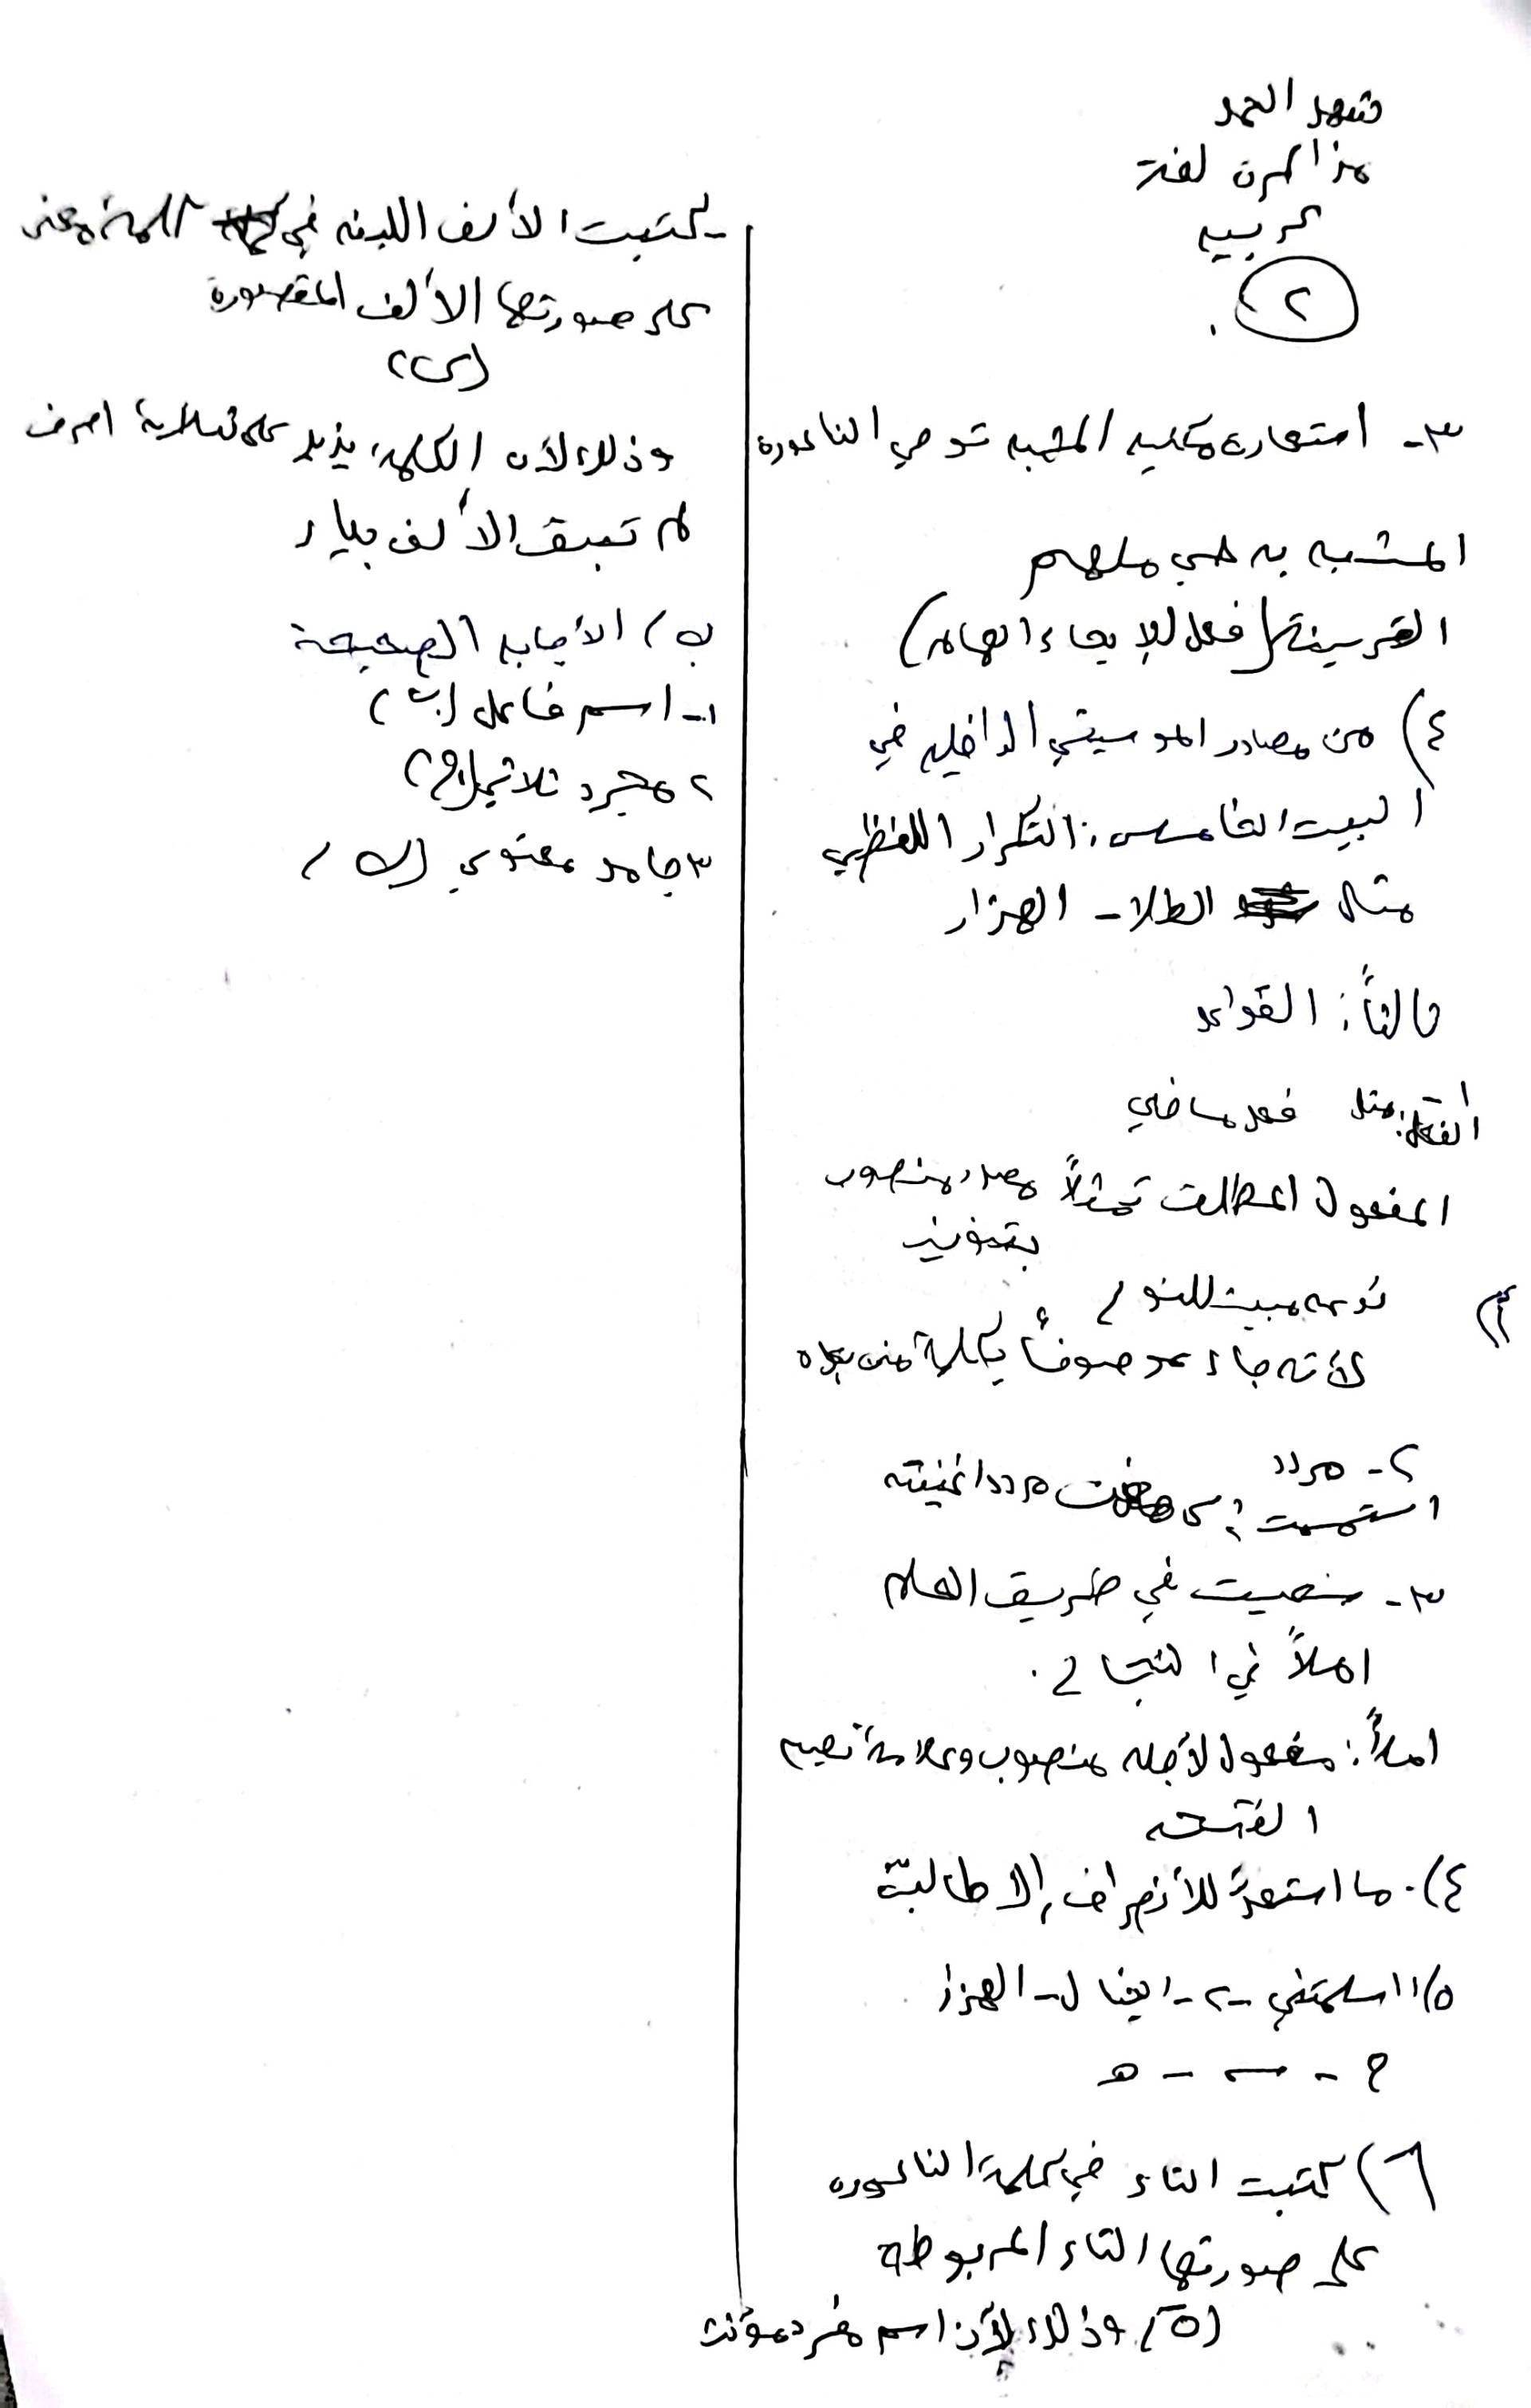 شهد الحمد
مذاكرة لغة
عربيه
٢
٣- استعارة مكنيه المشبه توحي الناعورة
المشبه به حي ملهم
القرينة (فعل للإيحاء الهام)
٤) من مصادر الموسيقي الداخليه في
البيت الخامس: التكرار اللفظي
مثال الطلا - الهزار
ثالثاً: القواعد
١-
الفعل: مثل فعل ماضي
المفعول المطلق تمثلاً مصدر منصوب
بتنوين
نوعه مبين للنوع
لأنه جاء موصوفاً بكلمة من بعده
٢- مردد
استمعت: مردد اغنيته
٣- سعيت في طريق العلم
املاً في النجاح.
املاً: مفعول لأجله منصوب وعلامة نصبه
الفتحه
٤). ما استعدَّ للأنصراف إلا طالبٌ
٥/ ١ اسلمتني -٢- ايغال - الهزار
٦) كتبت التاء في كلمة الناعوره
على صورتها التاء المربوطة
(ة) وذلك لأن اسم مفرد مؤنث
- كتبت الألف اللينه في كلمة
على صورتها الألف المقصوره
(ى)
وذلك لأن الكلمة يزيد على ثلاثة احرف
لم تسبق الألف بياء
ب/ الأجابه الصحيحة
١- اسم فاعل (ب)
٢ مجرد ثلاثي
٣ جامد معنوي